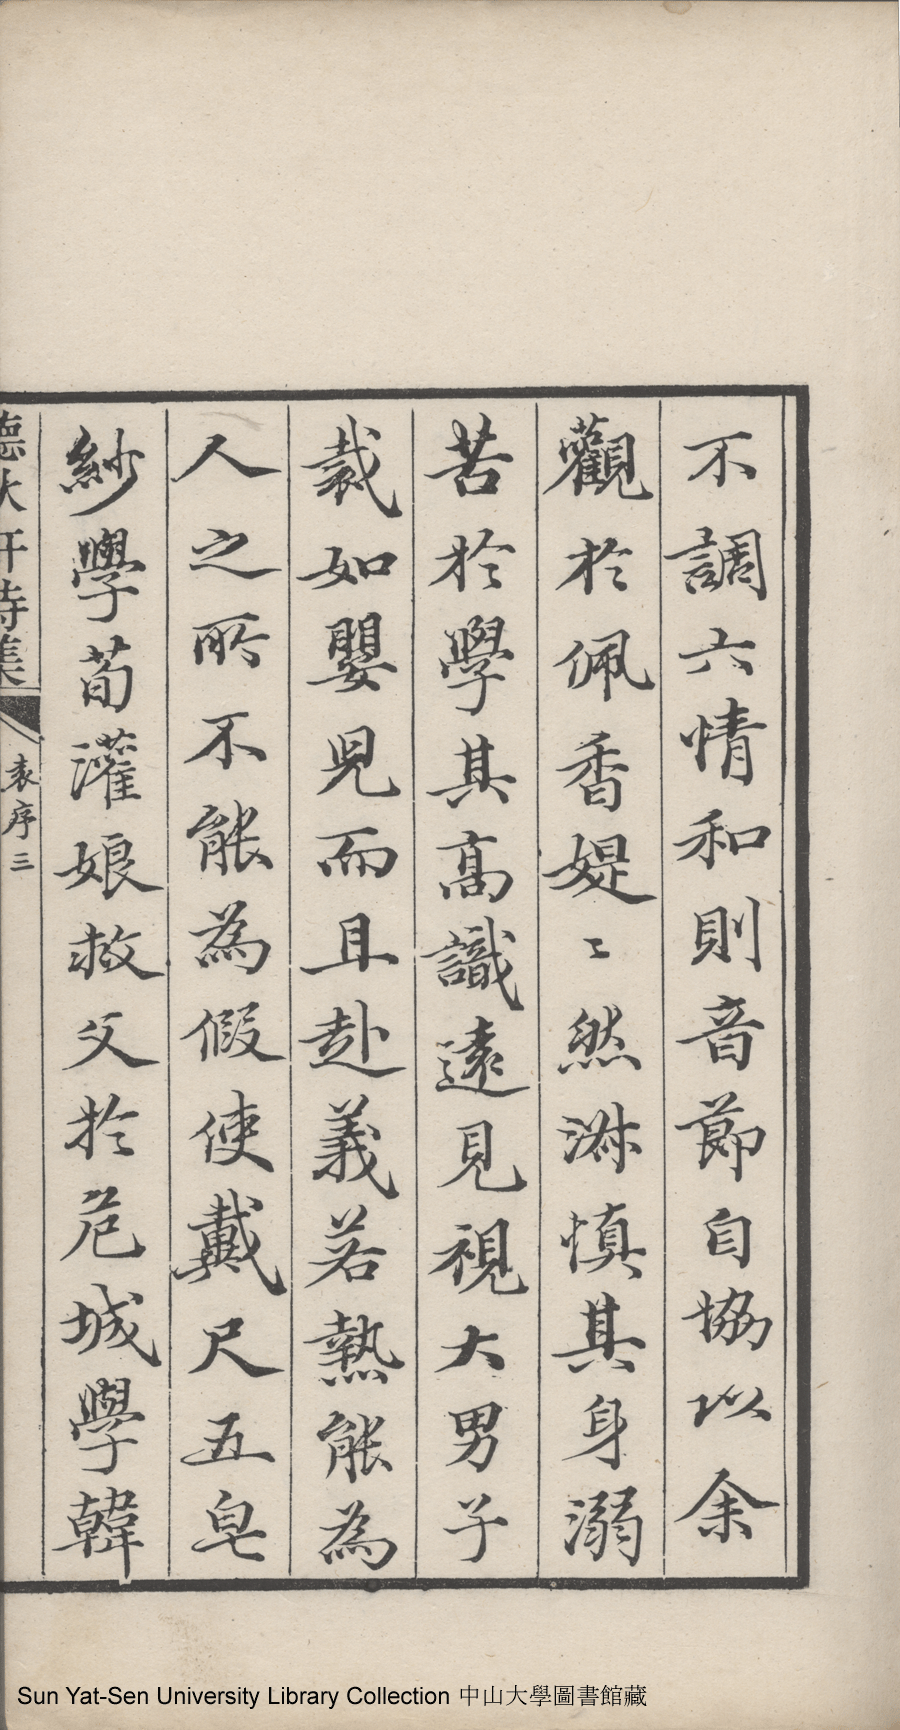 不調六情和則音節自協以余
觀於佩香媞〻然淑慎其身溺
苦於學其高識遠見視大男子
裁如嬰兒而且赴義若熱能為
人之所不能為假使戴尺五皂
紗學荀灌娘救父於危城學韓
聽秋軒詩集
袁序三
Sun Yat-Sen University Library Collection 中山大學圖書館藏